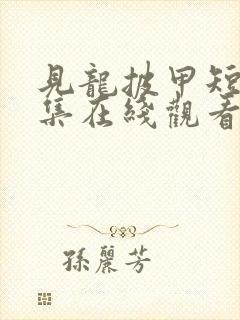 見龍披甲短
集在綫觀看
孫麗芳